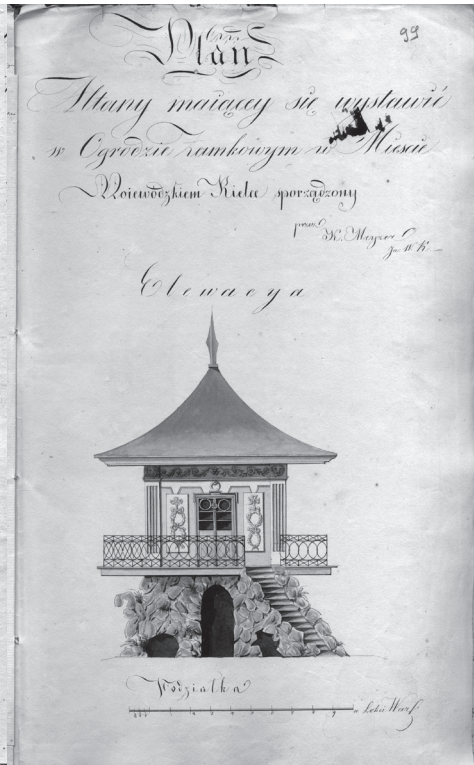 99
Plan
Altany maiącey się wystawić
w Ogrodzie Zamkowym w Mieście
Woiewódzkiem Kielce sporządzony
przez
K. Meyzer
J. W. K.
Elewacya
Podziałka
Łokci Warſ.